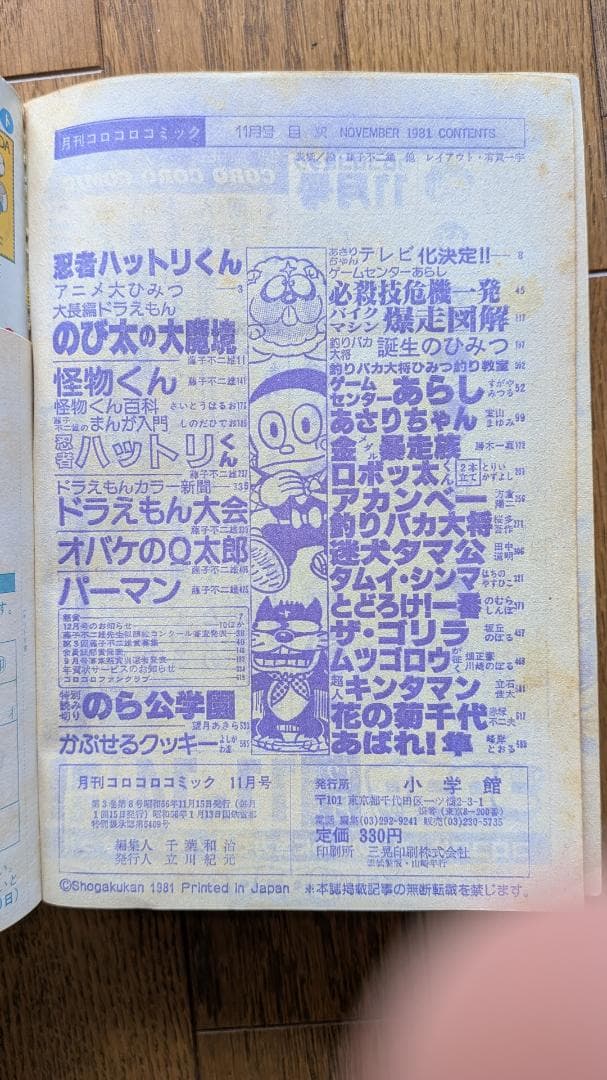 月刊コロコロコミック
11月号 目次 NOVEMBER 1981 CONTENTS
表紙/絵・藤子不二雄 他 レイアウト・有賀一宇
忍者ハットリくん
アニメ大ひみつ 3
大長編ドラえもん
のび太の大魔境
藤子不二雄 11
怪物くん 藤子不二雄 141
怪物くん百科 さいとうはるお
藤子不二雄のまんが入門 しのだひでお
忍者ハットリくん
藤子不二雄
ドラえもんカラー新聞
ドラえもん大会
藤子不二雄
オバケのQ太郎
藤子不二雄
パーマン 藤子不二雄
懸賞
12月号のお知らせ
藤子不二雄先生似顔絵コンクール審査発表
第3回藤子不二雄賞募集
会員証部賞発表
9月号懸賞当選者発表
年賀状サービスのお知らせ
コロコロファンクラブ
特別読み切り のら公学園
望月あきら
かぶせるクッキー よしかわ
あさりちゃん テレビ化決定!! 8
ゲームセンターあらし
必殺技危機一発 45
バイクマシン 爆走図解
釣りバカ大将 誕生のひみつ 197
釣りバカ大将ひみつ釣り教室
ゲームセンター あらし すがやみつる 52
あさりちゃん 室山まゆみ 99
金メダル暴走族 勝木一嘉
ロボッ太くん 2本立て とりいかずよし
アカンベー 方倉陽二
釣りバカ大将 桜多吾作 271
迷犬タマ公 田中道明
タムイ・シンマ はちのやすひこ
とどろけ!一番 のむらしんぼ
ザ・ゴリラ 坂丘のぼる
ムツゴロウが征く 畑正憲 川崎のぼる
超人キンタマン 立石佳太
花の菊千代 赤塚不二夫
あばれ!隼 峰岸とおる
月刊コロコロコミック 11月号
第3巻第8号昭和56年11月15日発行(毎月
1回15日発行)昭和56年1月13日国鉄首都
特別扱承認第5409号
編集人 千葉和治
発行人 立川紀元
発行所 小学館
〒101 東京都千代田区一ツ橋2-3-1
振替(東京8-200番)
電話 編集(03)292-9241 販売(03)230-5735
定価 330円
印刷所 三晃印刷株式会社
©Shogakukan 1981 Printed in Japan ※本誌掲載記事の無断転載を禁じます。